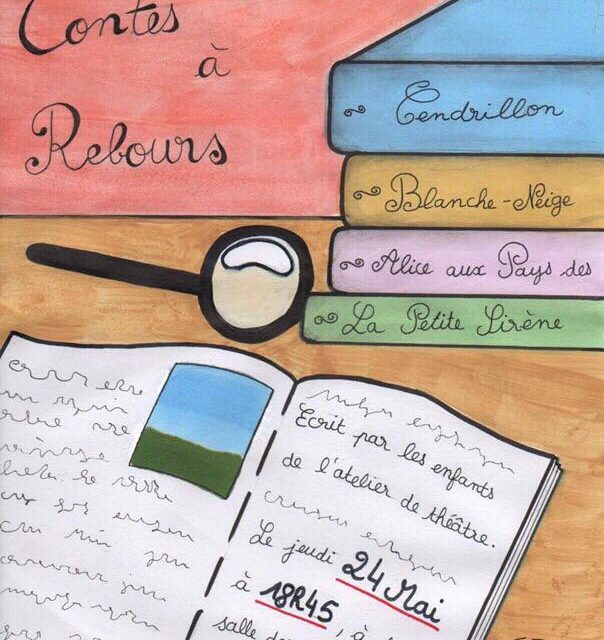 Contes
à
Rebours
Cendrillon
Blanche-Neige
Alice aux Pays des
La Petite Sirène
Ecrit par les enfants
de l'atelier de théâtre.
Le jeudi 24 Mai
à 18h45, à
salle